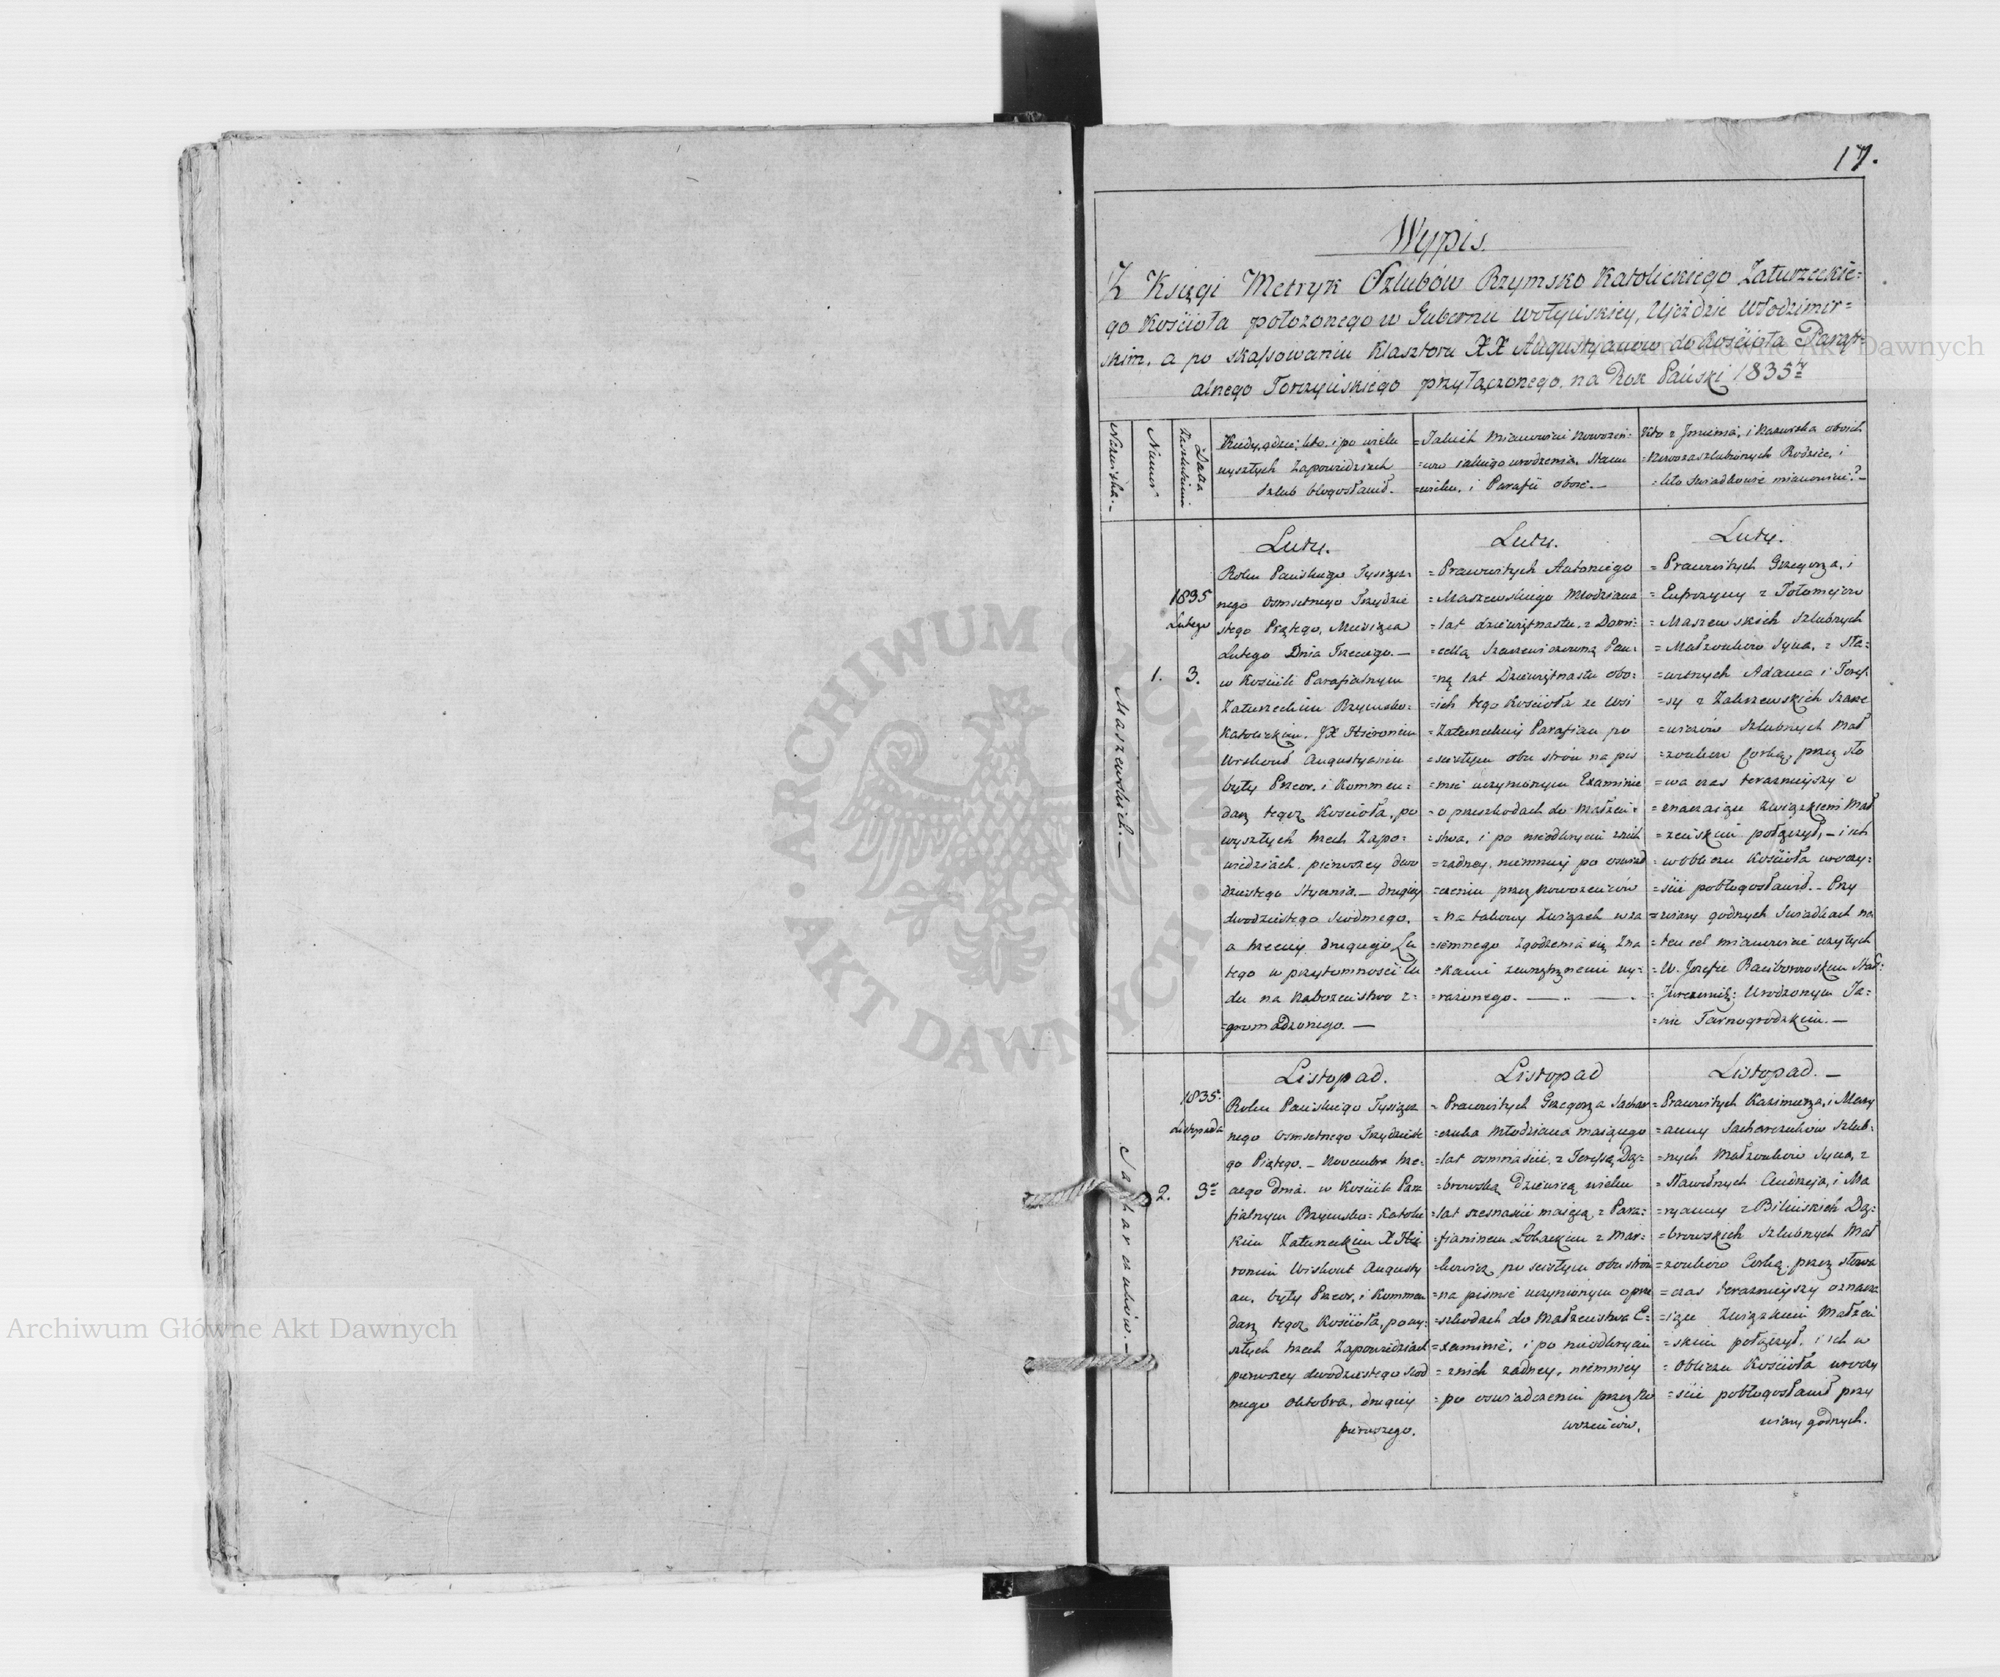 17.
Wypis.
Z Księgi Metryk Szlubów Rzymsko Katolickiego Zaturzeckie=
go Kościoła położonego w Gubernii wołyńskiey, Ujeździe Włodzimir=
skim, a po skassowaniu Klasztoru XX Augustyanow do Kościoła Parafi=
alnego Torczyńskiego przyłączonego, na Rok Pański 1835ty
Nazwiska.-
Numer
Data Zaszlubienia
Kiedy, gdzie, kto, i po wielu
wyszłych Zapowiedziach
Szlub błogosławił.
=Jakich mianowicie Nowożeń=
=ców jakiego urodzenia, stanu
=wieku, i Parafii oboie.-
Kto z Imienia, i Nazwiska oboich
=Nowozaszlubionych Rodzice, i
=kto Swiadkowie mianowicie?-
Maszewskich.-
1.
1835
Lutego
3.
Luty.
Roku Pańskiego Tysiącz=
nego osmsetnego Trzydzie
stego Piątego, Miesiąca
Lutego Dnia Trzeciego.-
w Kościele Parafialnym
Zaturzeckim Rzymsko=
Katolickim, JX Hieronim
Wiskont Augustyanin
były Przeor, i Kommen=
darz tegoż Kościoła, po
wyszłych trzech Zapo=
wiedziach, pierwszey dwu
dziestego Stycznia.- drugiey
dwódziestego Siodmego,
a trzeciey drugiego Lu
tego w przytomności lu
du na Nabożeństwo z=
=gromadzonego.-
Luty.
=Prawowitych Antoniego
=Maszewskiego Młodziana
=lat dziewiętnastu, z Domi=
=cellą Szaszewiczowną Pan=
=ną lat Dziewiętnastu obo=
=ich tego Kościoła ze wsi
=Zaturzeckiey Parafian po
=scisłym obu stron na piś
=mie uczynionym Examinie
=o przeszkodach do małżeń=
=stwa, i po nieodkryciu z nich
=żadney, niemniey po oswiad
=czeniu przez Nowożeńców
=na takowy Związek wza
=iemnego zgodzenia się zna
=kami zewnętrznemi wy=
=rażonego.-
Luty.
=Prawowitych Grzegorza, i
=Eufrozyny z Tołomejow
=Maszewskich szlubnych
=Małżonkow Syna, z Sta=
=wetnych Adama i Teres=
=sy z Zaliszewskich
=szlubnych Mał
=żonkow Corką, przez sło
=wa czas teraznieyszy o
=znaczaiące związkiem Mał
=żeńskim połączył,- i ich
=w obliczu Kościoła uroczy=
=ście pobłogosławił.- Przy
=wiary godnych Swiadkach na
=ten cel mianowicie użytych
=W. Jozefie Raciborowskim
=Urodzonym Ja=
=nie Tarnogrodzkim.-
Sacharczuków.-
2.
1835.
Listopada
3o
Listopad.
Roku Pańskiego Tysiącz
nego osmsetnego Trzydzieste
go Piątego.- Novembra trze=
ciego dnia. w Kościele Para
fialnym Rzymsko=Katolic
kim Zaturzeckim X Hie
ronim Wiskont Augusty
an, były Przeor, i Kommen
darz tegoż Kościoła, po wy=
szłych trzech Zapowiedziach
pierwszey dwódziestego Siod
mego Oktobra, drugiey
pierwszego,
Listopad
=Prawowitych Grzegorza Sachar
=czuka Młodziana maiącego
=lat osmnaście, z Teressą Dą=
=browską Dziewicą wieku
=lat szesnaście maiącą z Para=
=fianinem z Mar=
=kowicz, po scisłym obu stron
=na piśmie uczynionym o prze
=szkodach do Małżeństwa E=
=xaminie, i po nieodkryciu
=z nich żadney, niemniey
=po oswiadczeniu przez No
wożeńców,
Listopad.-
=Prawowitych Kazimierza, i Mary
=anny Sacharczukow szlub=
=nych Małżonkow Syna, z
=Stawetnych Andrzeja, i Ma
=ryanny z Bilińskich Dą=
=browskich szlubnych Mał
=żonkow Corką, przez słowa
=czas teraznieyszy oznacza
=iące Związkiem Małżeń
=skim połączył, i ich w
=Obliczu Kościoła uroczy
=ście pobłogosławił przy
wiary godnych.
ARCHIWUM GŁÓWNE • AKT DAWNYCH •
Archiwum Główne Akt Dawnych
Archiwum Główne Akt Dawnych